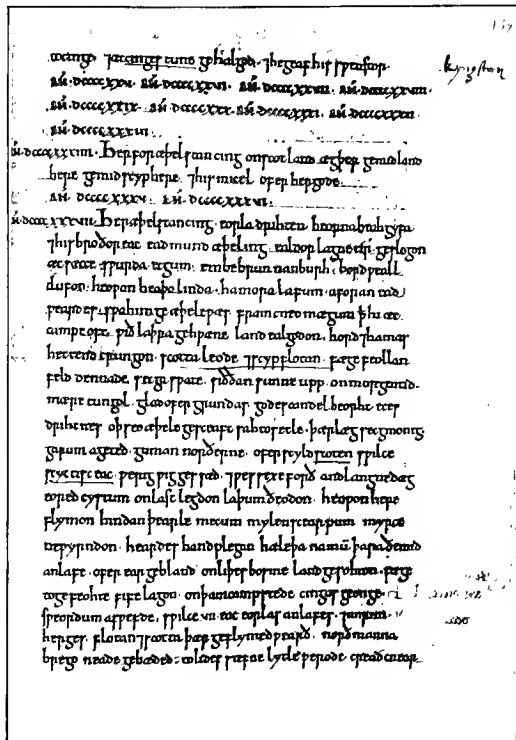 to cinge ⁊ æt cinges tune gehalgod. ⁊ he geaf his sƿeostor.
kyngston
AN̄. dccccxxv. AN̄. dccccxxvi. AN̄. dccccxxvii. AN̄. dccccxxviii.
AN̄. dccccxxix. AN̄. dccccxxx. AN̄. dccccxxxi. AN̄. dccccxxxii.
AN̄. dccccxxxiii.
AN̄. dccccxxxiiii. Her for æþelstan cing on scotland ægþer ge mid land
here ge mid scyphere. ⁊ his micel ofer hergode.
AN̄. dccccxxxv. AN̄. dccccxxxvi.
AN̄. dccccxxxvii. Her æþelstan cing. eorla drihten. beorna beahgyfa
⁊ his broðor eac eadmund æþeling. ealdor lagne tir. geslogon
æt sæcce. sƿurda ecgum. embe brunnanburh. bord ƿeall
clufon. heoƿon heaþolinda. hamora lafum. aforan ead
ƿeardes. sƿa him geæþele ƿæs fram cneomagum þæt hi æt
campe oft. ƿið laþra gehƿæne. land ealgodon. hord ⁊ hamas
hettend crungon. scotta leode ⁊ scypflotan. fæge feollan
feld dennade. secga sƿate. siððan sunne upp. on morgentid.
mære tungol. glad ofer grundas godes candel beorht. eces
drihtnes oþ seo æþele gesceaft sah to setle. þær læg secg monig
garum ageted. guman norðerne. ofer scyld sceoten sƿilce
scyttisc eac. ƿerig ƿigges sæd. ⁊ ƿessexe forð andlangne dæg
eored cystum on last legdon laþum ðeodon. heoƿon here
flymon hindan þearle mecum mylenscearpum myrce
ne ƿyrndon. heardes handplegan hæleþa nanum̄ þara ðe mid
anlafe. ofer eargebland on liþes bosme land gesohton. fæge
to gefeohte fife lagon. on þam campstede cingas geonge.
sƿeordum asƿefde. sƿilce .vii. eac eorlas anlafes. unrim
herges. flotan ⁊ scotta þær geflymed ƿearð. norðmanna
brego neade gebæded. to lides stefne lytle ƿerode. cread cnear